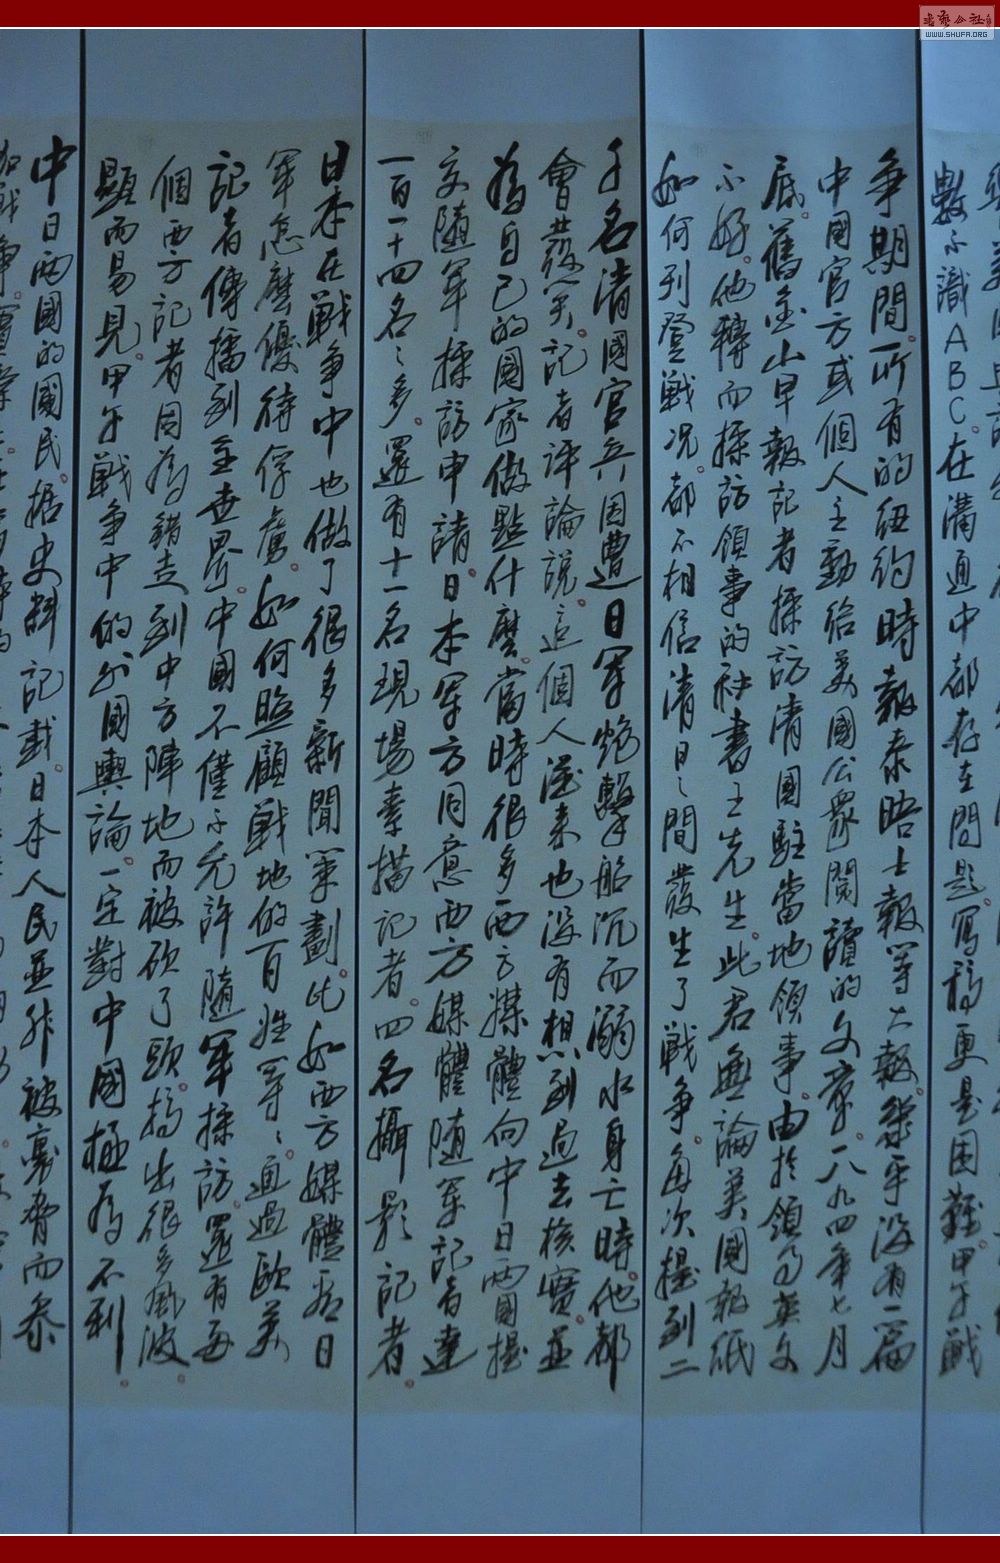 數不識ABC。在溝通中都存在問題寫稿更是困難。甲午戰
爭期間。所有的纽约時報泰晤士報等大報。幾乎沒有一篇
中國官方或個人主動給美國公眾閱讀的文章。一八九四年七月
底。舊金山早報記者採訪清國駐當地領事。由於領事英文
不好。他轉而採訪領事的秘書王先生此君無論美國報紙
如何刊登戰况都不相信清日之間發生了戰争每次提到二
千名清國官兵因遭日軍炮擊船沉而溺水身亡時。他都
會發笑。記者評論說這個人從來也沒有想到過去核實並
為自己的國家做點什麼。當時很多西方媒體向中日兩國提
交隨軍採訪申請。日本軍方同意西方媒體隨軍記者達
一百一十四名之多。還有十一名現場素描記者。四名攝影記者。
日本在戰争中也做了很多新聞策劃。比如西方媒體看日
軍怎麼優待俘虜。如何照顧戰地的百姓等等。通過歐美
記者傳播到全世界。中國不僅不允許隨軍採訪。還有兩
個西方記者因為錯走到中方陣地而被砍了頭。搞出很多風波。
顯而易見。甲午戰争中的外國輿論一定對中國極為不利。
中日兩國的國民。据史料記載。日本人民並非被裹脅而参
書藝公社
WWW.SHUFA.ORG